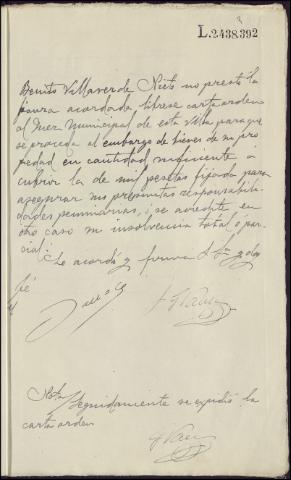 L.2438.392
Benito Villaverde Nieto no presta la
fianza acordada librese carta orden
al Juez Municipal de esta Villa para que
se proceda al embargo de bienes de su pro
piedad en cantidad suficiente á
cubrir la de mil pesetas fijada para
asegurar sus presuntas responsabili-
dades pecuniarias, i se acredite en
otro caso su insolvencia total ó par
cial.
Lo acordó y firma S Sª y doy
fé
Nota
Seguidamente se expidió la
carta orden